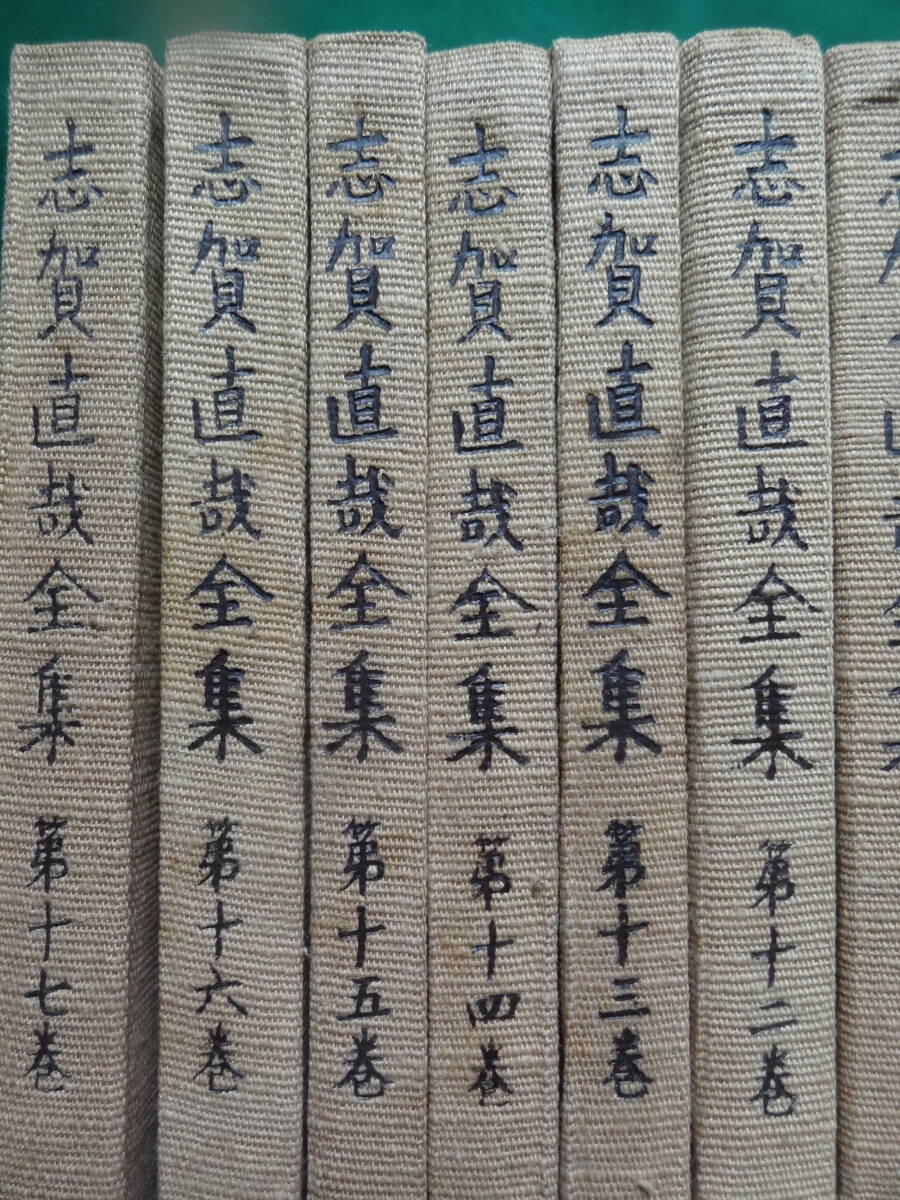 志賀直哉全集 第十二巻
志賀直哉全集 第十三巻
志賀直哉全集 第十四巻
志賀直哉全集 第十五巻
志賀直哉全集 第十六巻
志賀直哉全集 第十七巻